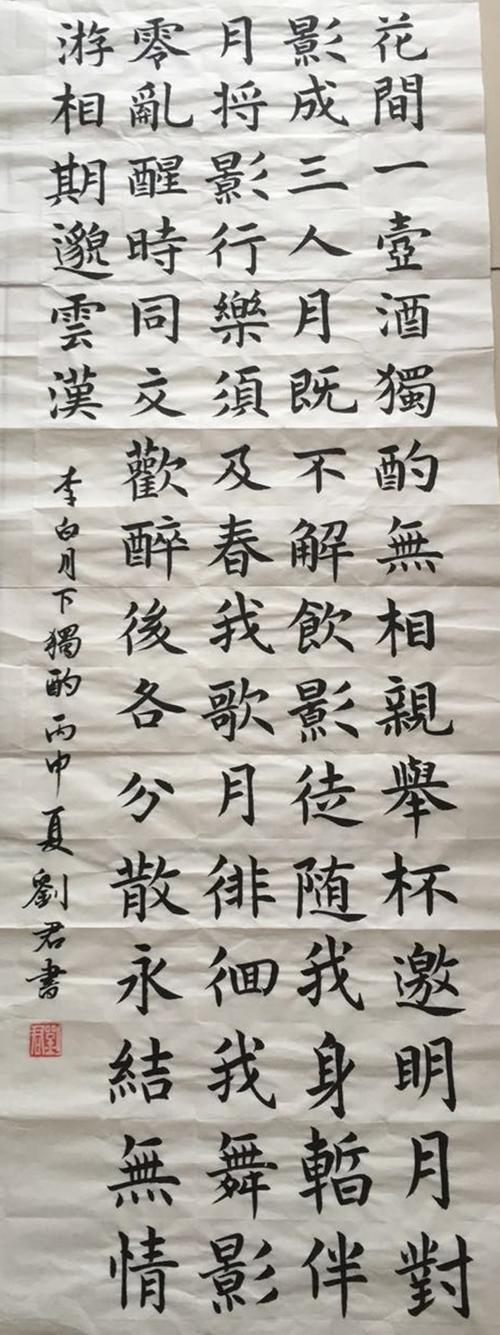 花間一壺酒獨酌無相親舉杯邀明月對
影成三人月既不解飲影徒随我身暫伴
月将影行樂須及春我歌月徘徊我舞影
零亂醒時同交歡醉後各分散永結無情
游相期邈雲漢
李白月下獨酌丙申夏劉君書